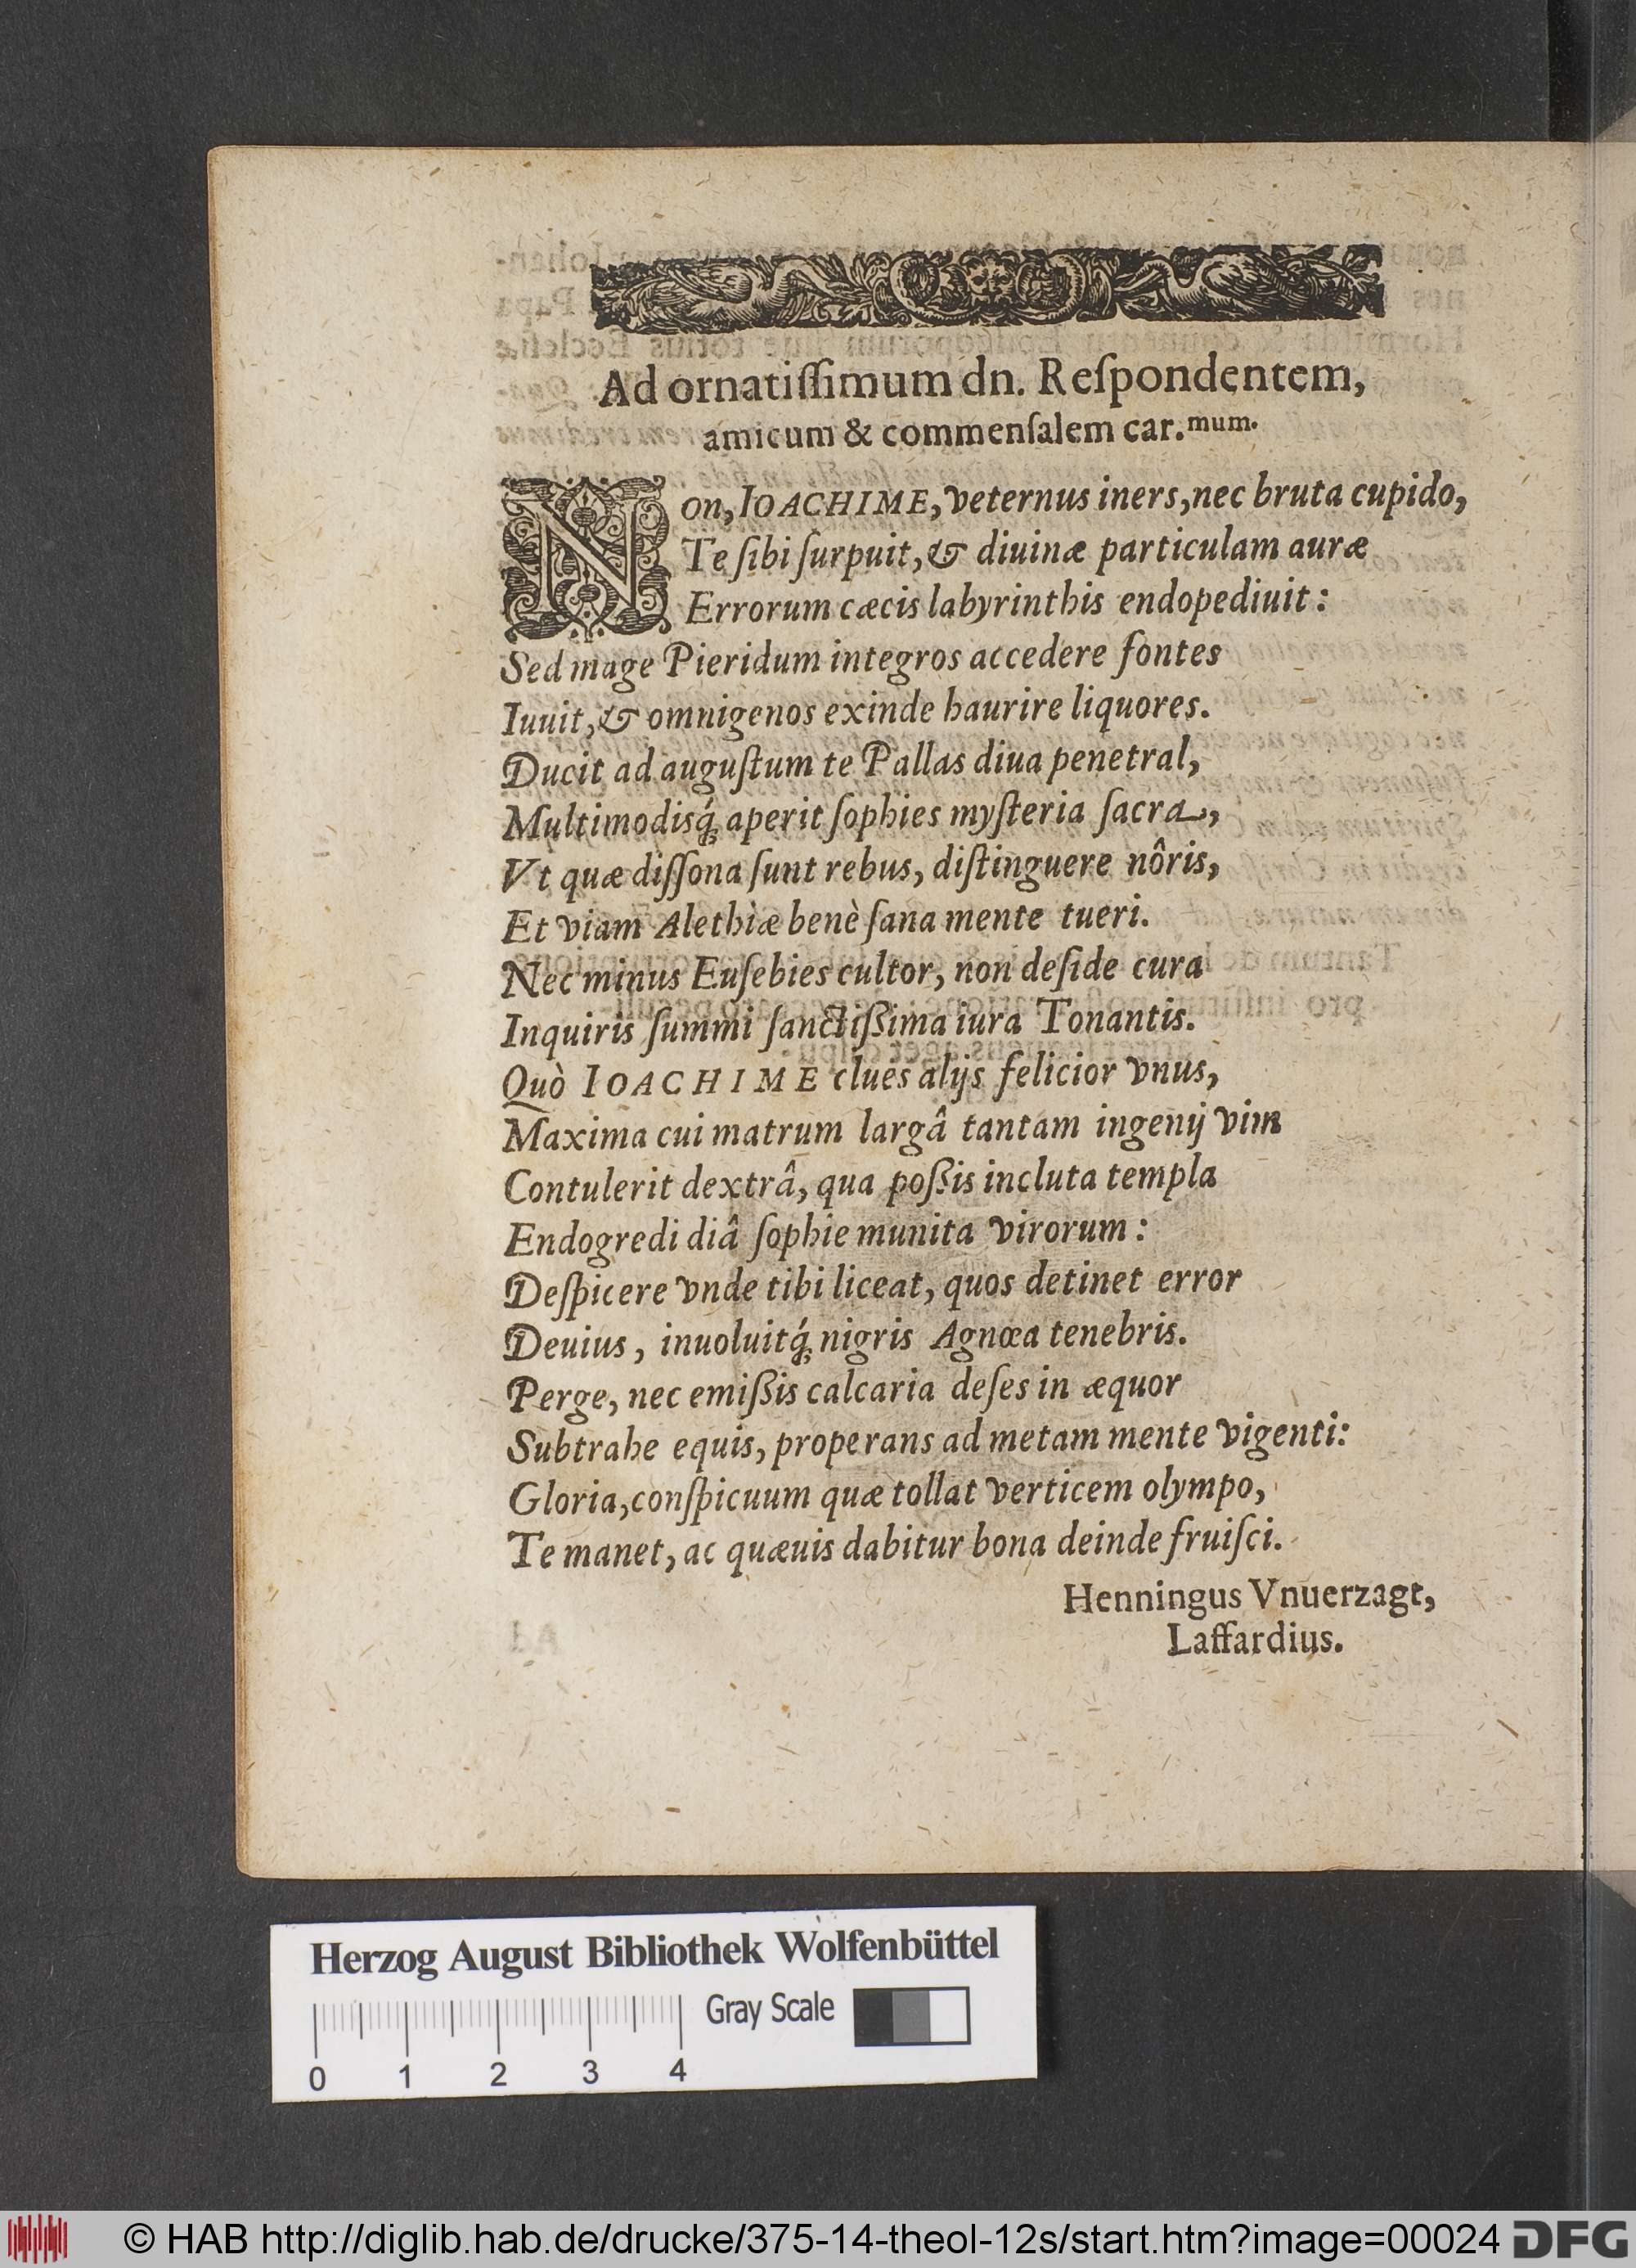 Ad ornatiſſimum dn. Reſpondentem,
amicum & commenſalem car.mum.
Non, IOACHIME, veternus iners, nec bruta cupido,
Te ſibi ſurpuit, & diuinæ particulam auræ
Errorum cæcis labyrinthis endopediuit:
Sed mage Pieridum integros accedere fontes
Iuuit, & omnigenos exinde haurire liquores.
Ducit ad auguſtum te Pallas diua penetral,
Multimodisq́; aperit ſophies myſteria ſacra,
Vt quæ diſſona ſunt rebus, diſtinguere nôris,
Et viam Alethiæ benè ſana mente tueri.
Nec minus Euſebies cultor, non deſide cura
Inquiris ſummi ſanctißima iura Tonantis.
Quò IOACHIME clues alijs felicior vnus,
Maxima cui matrum largâ tantam ingenij vim
Contulerit dextrâ, qua poßis incluta templa
Endogredi diâ ſophie munita virorum:
Deſpicere vnde tibi liceat, quos detinet error
Deuius, inuoluitq́; nigris Agnœa tenebris.
Perge, nec emißis calcaria deſes in æquor
Subtrahe equis, properans ad metam mente vigenti:
Gloria, conſpicuum quæ tollat verticem olympo,
Te manet, ac quæuis dabitur bona deinde fruiſci.
Henningus Vnuerzagt,
Laffardius.
Herzog August Bibliothek Wolfenbüttel
Gray Scale
0 1 2 3 4
© HAB http://diglib.hab.de/drucke/375-14-theol-12s/start.htm?image=00024 DFG